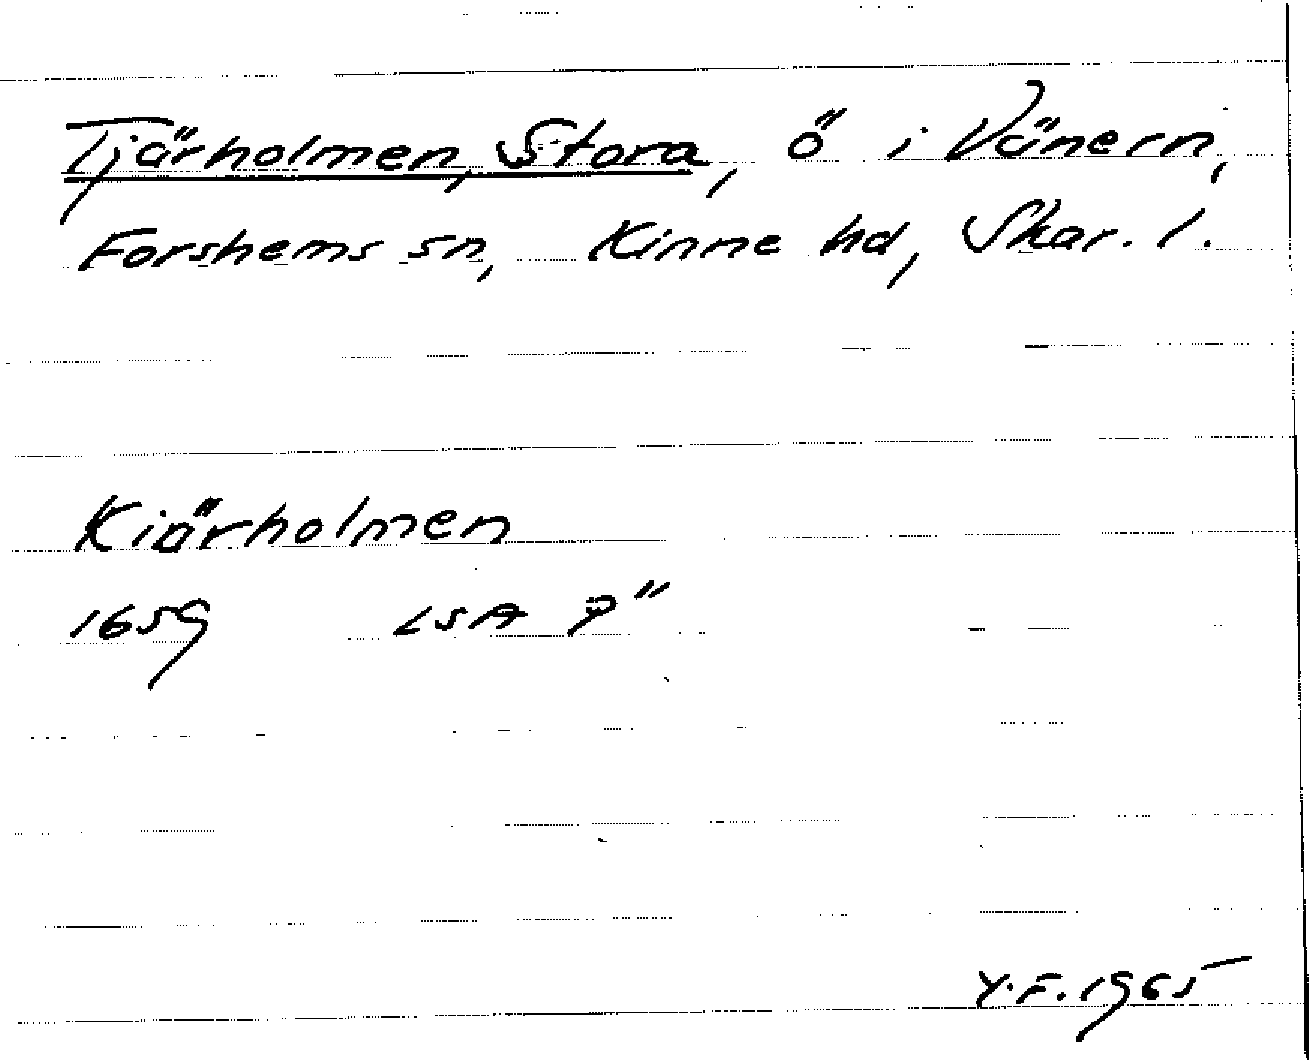 Tjärholmen, Stora, ö i Vänern,
Forshems sn, Kinne hd, Skar. l.
Kiärholmen
1659 LSA P"
Y.F. 1965